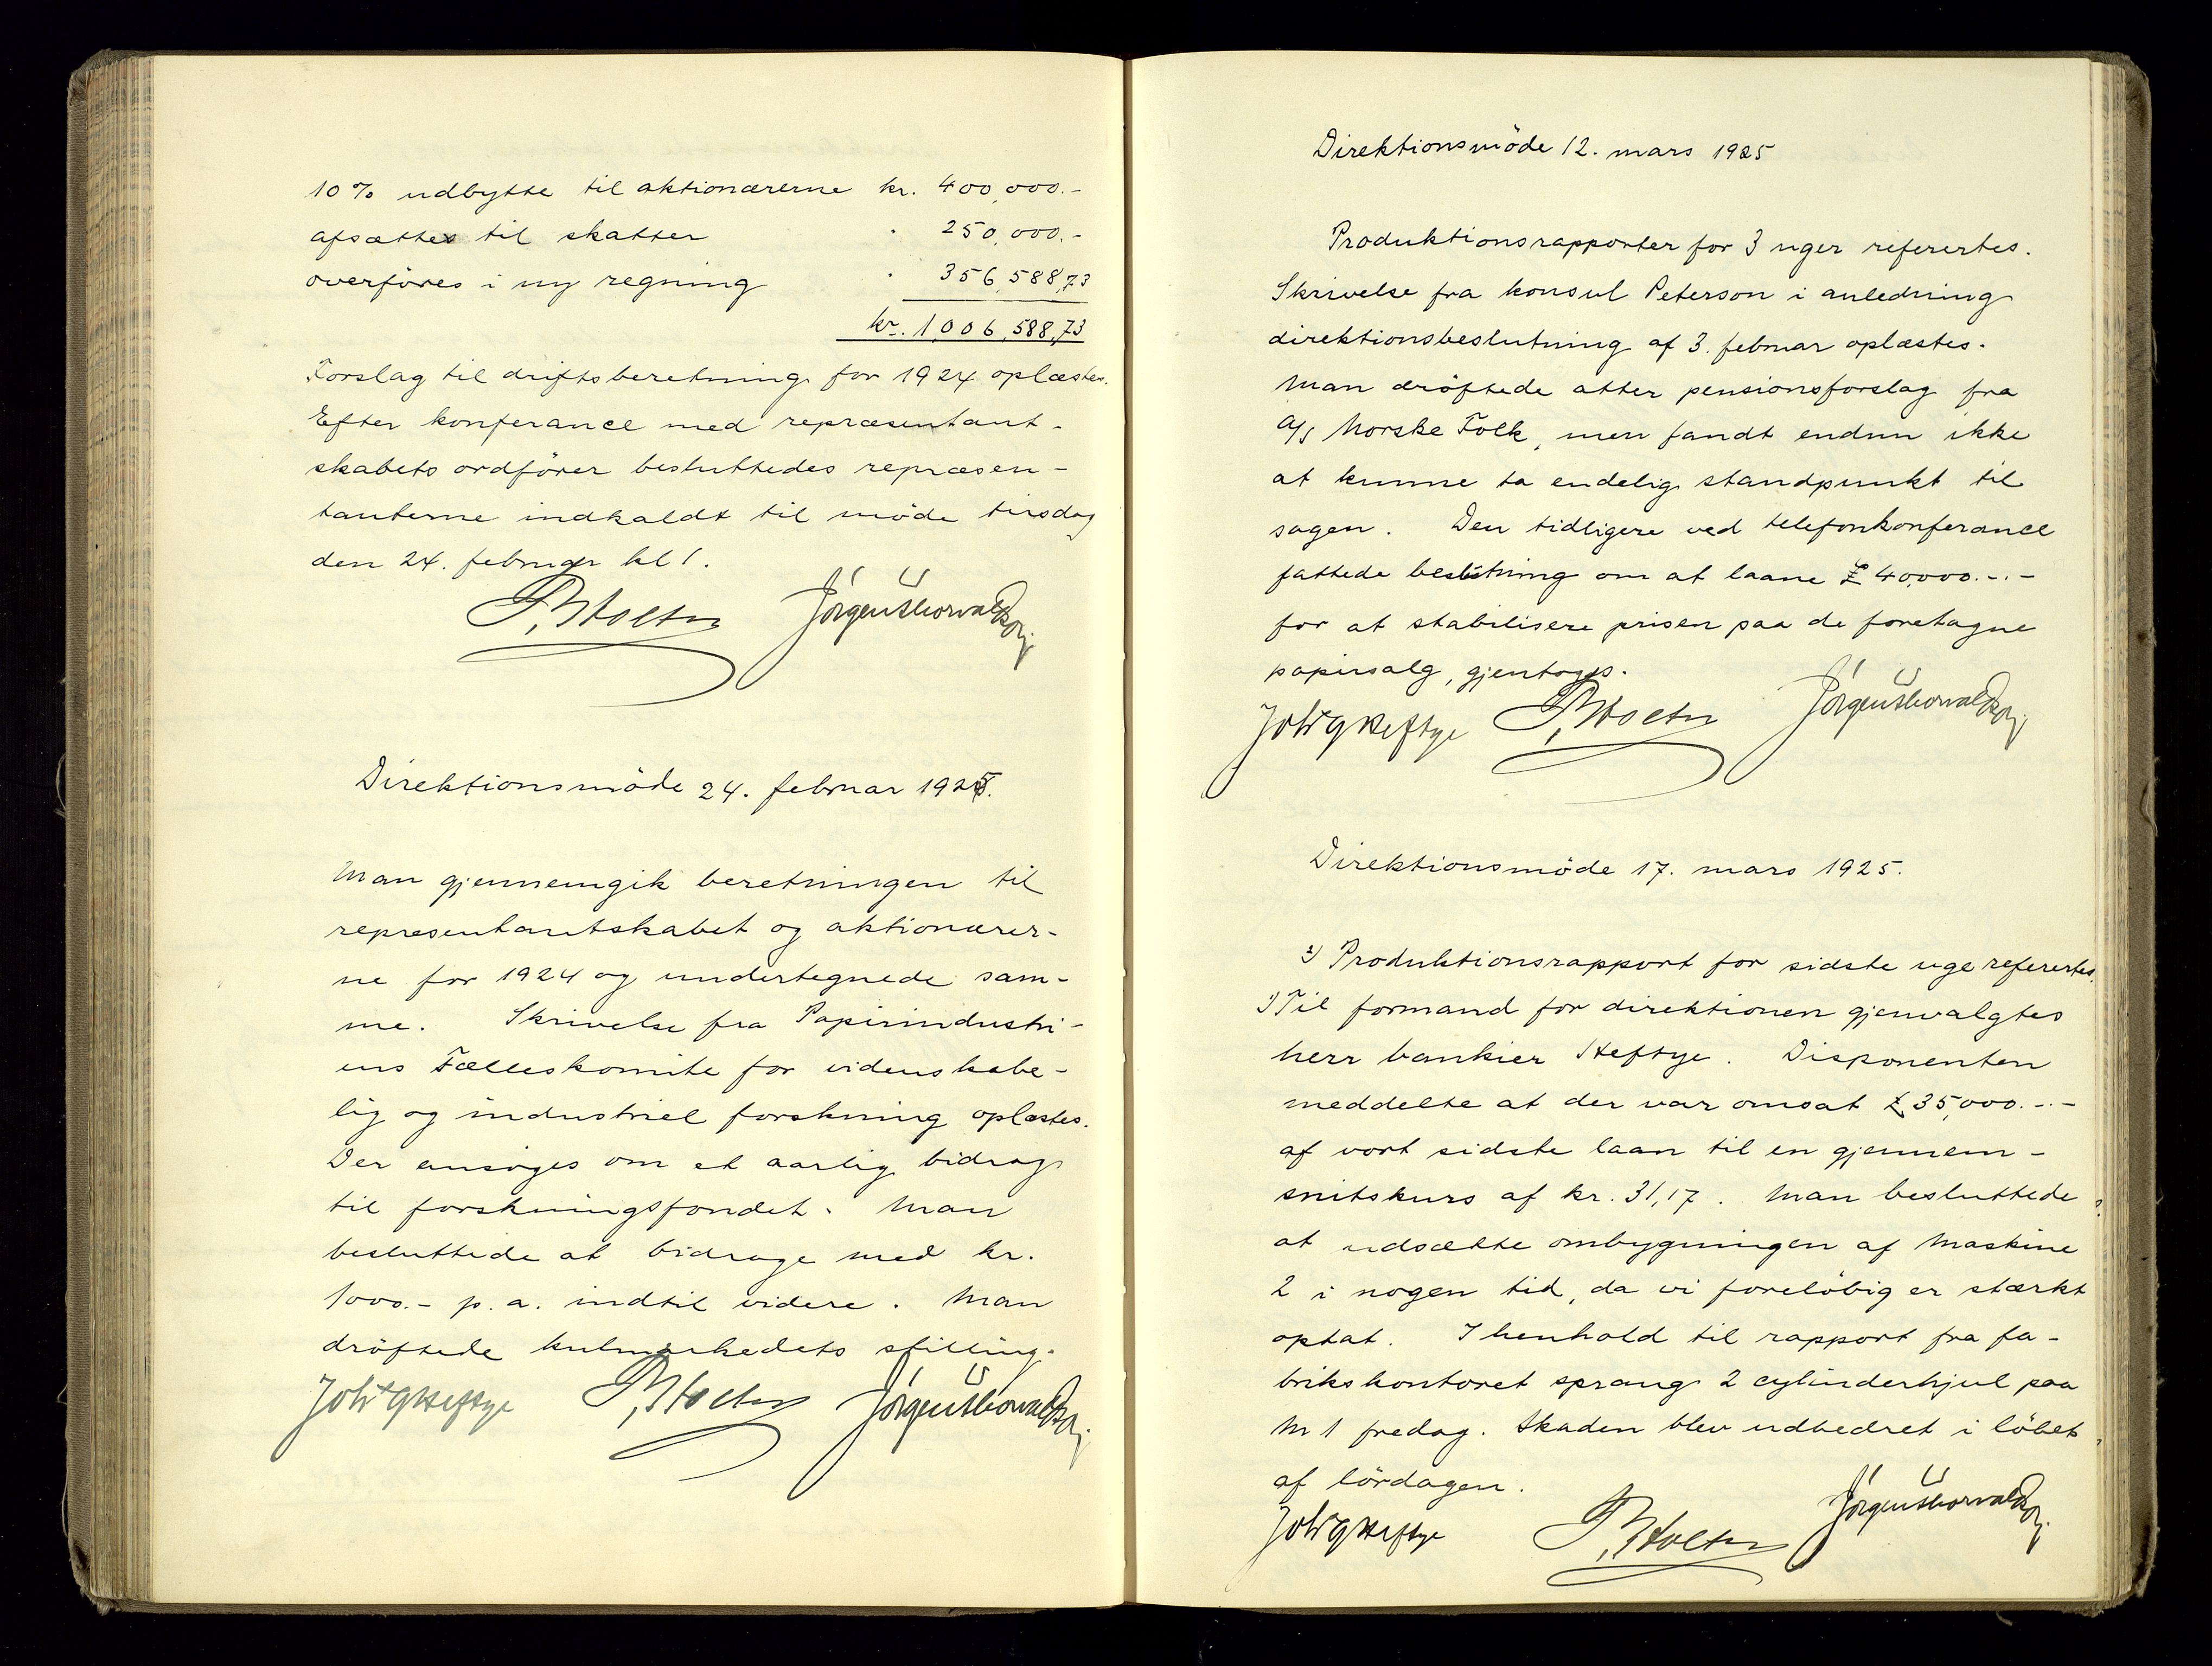 10 % udbytte til aktionærerne kr. 400,000.-
afsættes til skatter " 250,000.-
overföres i ny regning " 356,588,73
kr. 1,006,588,73
Forslag til driftsberetning for 1924 oplæstes.
Efter konferance med repræsentant-
skabets ordförer besluttedes repræsen-
tanterne indkaldt til möde tirsdag
den 24. februar kl 1.
Direktionsmöde 24. februar 1925.
Man gjennemgik beretningen til
representantskabet og aktionærer-
ne for 1924 og undertegnede sam-
me. Skrivelse fra Papirindustri-
ens Fælleskomite for videnskabe-
lig og industriel forskning oplæstes.
Der ansöges om et aarlig bidrag
til forskningsfondet. Man
besluttede at bidrage med kr.
1000.- p. a. indtil videre. Man
dröftede kulmarkedets stilling.
Joh Heftye P. Holter Jörgen Thorvald
Direktionsmöde 12. mars 1925
Produktionsrapporter for 3 uger refererttes.
Skrivelse fra konsul Peterson i anledning
direktionsbeslutning af 3. februar oplæstes.
Man dröftede atter pensionsforslag fra
A/S Norske Folk, men fandt endnu ikke
at kunne ta endelig standpunkt til
sagen. Den tidligere ved telefonkonferance
fattede beslutning om at laane £ 40,000.-.-
for at stabilisere prisen paa de foretagne
papirsalg, gjentoges.
Direktionsmöde 17. mars 1925.
2) Produktionsrapport for sidste uge referertes.
1) Til formand for direktionen gjenvalgtes
herr bankier Heftye. Disponenten
meddelte at der var omsat £ 35,000.-.-
af vort sidste laan til en gjennem-
snitskurs af kr. 31,17. Man besluttede
at udsætte ombygningen af Maskine
2 i nogen tid, da vi foreløbig er stærkt
optat. I henhold til rapport fra fa-
brikskontoret sprang 2 cylinderhjul paa
M 1 fredag. Skaden blev udbedret i löbet
af lördagen.